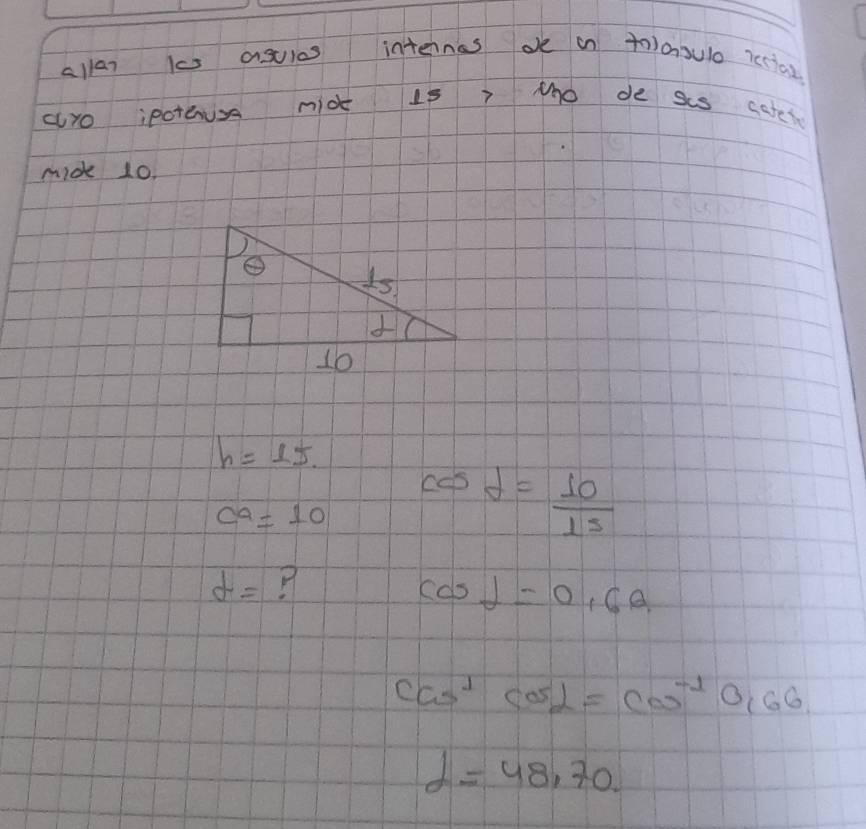 allar los angulos internos de un triangulo rectan
cuyo ipotenusa mide 15 y uno de sus cateto
mide 10.
θ
15.
α
10
h = 15.
cos α = 10
ca = 10
15
α = ?
cos α = 0,66
cos⁻¹ cos α = cos⁻¹ 0,66
α = 48,70.